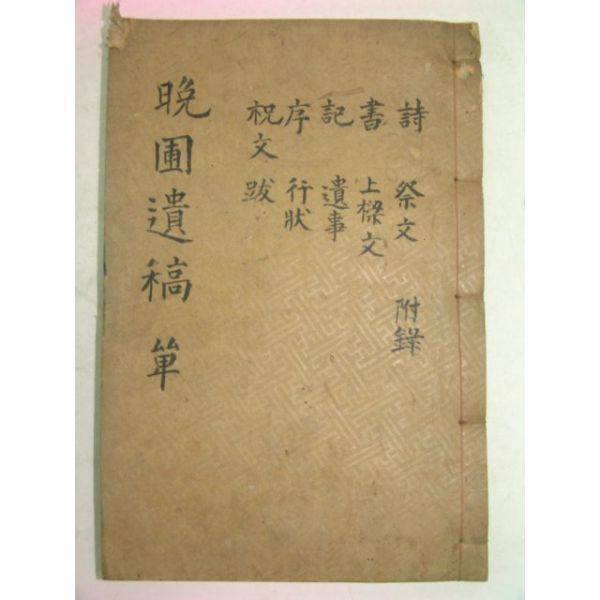 詩 祭文 附錄
書 上樑文
記 遺事
序 行狀
祝文 跋
晚圃遺稿 單